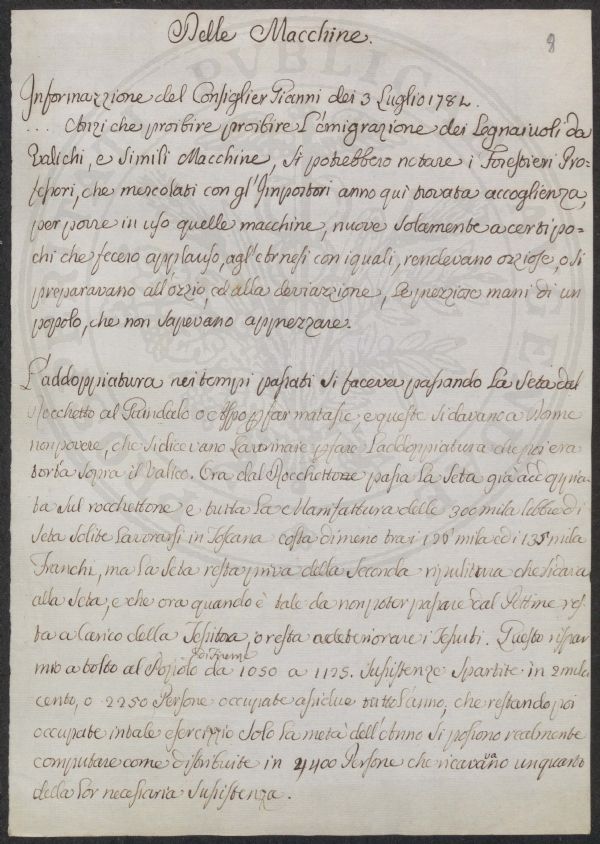 Delle Macchine.
8
Informazzione del Consiglier Gianni dei 3 Luglio 1782.
... Anzi che proibire proibire L'emigrazione dei Legnaiuoli da
Valichi, e Simili Macchine, Si potrebbero notare i Forestieri Pro-
fessori, che mescolati con gl'Impostori anno qui trovata accoglienza,
per porre in uso quelle macchine, nuove Solamente a certi po-
chi che fecero applauso, agl'Arnesi con i quali, rendevano ozziose, o Si
preparavano all'ozzio, ed alla deviazzione, Le preziose mani di un
popolo, che non Sapevano apprezzare.
L'addoppiatura nei tempi passati Si faceva passando La Seta dal
Rocchetto al Guindolo o Aspo p far matasse, e queste Si davano a Donne
non povere, che Si dicevano Lavorinare p fare L'addoppiatura che poi era
torta sopra il Valico. Ora dal Rocchettone passa La Seta già addoppia-
ta Sul rocchettone e tutta La Manifattura delle 300 mila Libbre di
Seta Solite Lavorarsi in Toscana costa di meno tra i 125 mila ed i 135 mila
Franchi, ma La Seta resta priva della Seconda ripulitura che Si dava
alla Seta, e che ora quando è tale da non poter passare dal Pettine res-
ta a Carico della Tessitora, o resta a deteriorare i Tessuti. Questo rispar-
mio a tolto al Popolo di Firenze da 1050 a 1125. Sussistenze Spartite in 2 mila
cento, o 2250 Persone occupate assidue tutto L'anno, che restando poi
occupate in tale esercizzio Solo La metà dell'Anno Si possono realmente
computare come distribuite in 4400 Persone che ricavavano un quarto
della Lor necessaria Sussistenza.